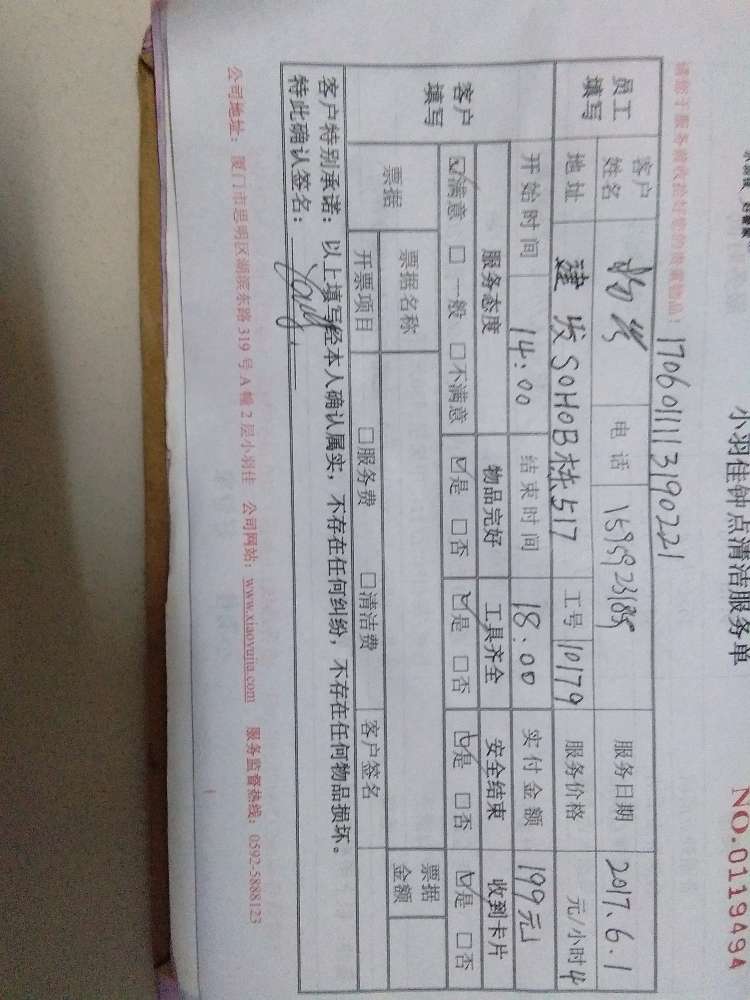 小羽佳钟点清洁服务单
NO.0119494
1706011113190221
员工填写 客户姓名 电话 服务日期 2017.6.1
地址 建发SOHOB栋517 工号 10179 服务价格 元/小时 4
客户填写 开始时间 14:00 结束时间 18:00 实付金额 199元
服务态度 物品完好 工具齐全 安全结束 收到卡片
☑满意 □一般 □不满意 ☑是 □否 ☑是 □否 ☑是 □否 ☑是 □否
票据 票据名称 票据金额
开票项目 □服务费 □清洁费 客户签名
客户特别承诺：以上填写经本人确认属实，不存在任何纠纷，不存在任何物品损坏。
特此确认签名：
公司地址：厦门市思明区湖滨东路319号A幢2层小羽佳 公司网站：www.xiaoyujia.com 服务监督热线：0592-5888123